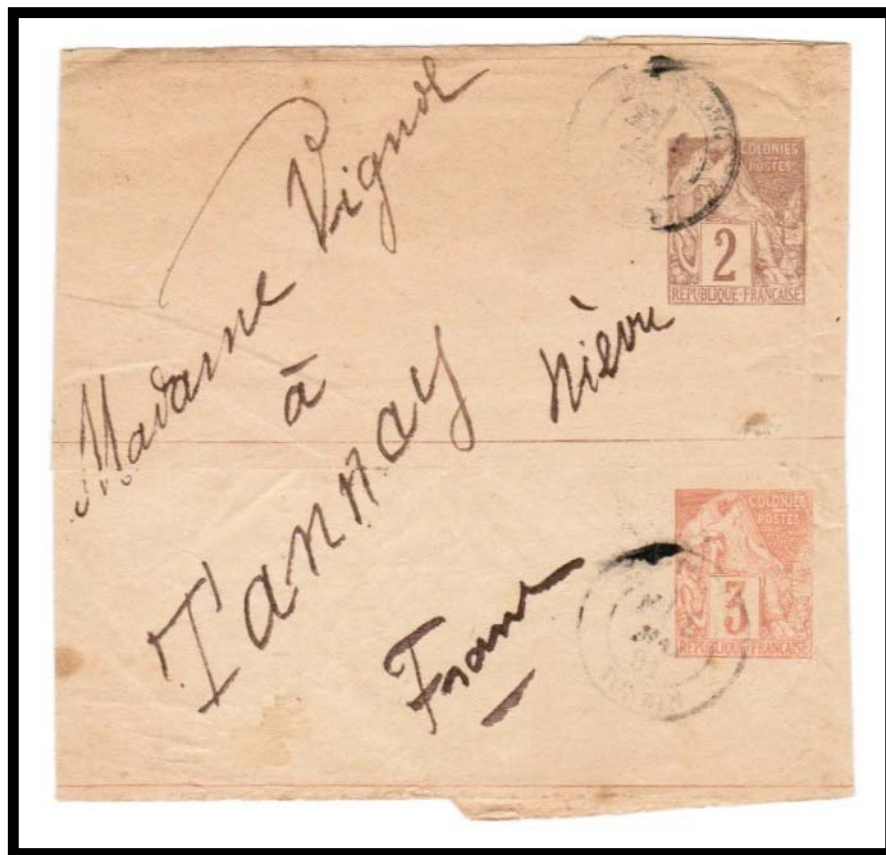 Madame Vignol
à
Tannay Nièvre
France
COLONIES
POSTES
2
REPUBLIQUE FRANÇAISE
COLONIES
POSTES
3
REPUBLIQUE FRANÇAISE